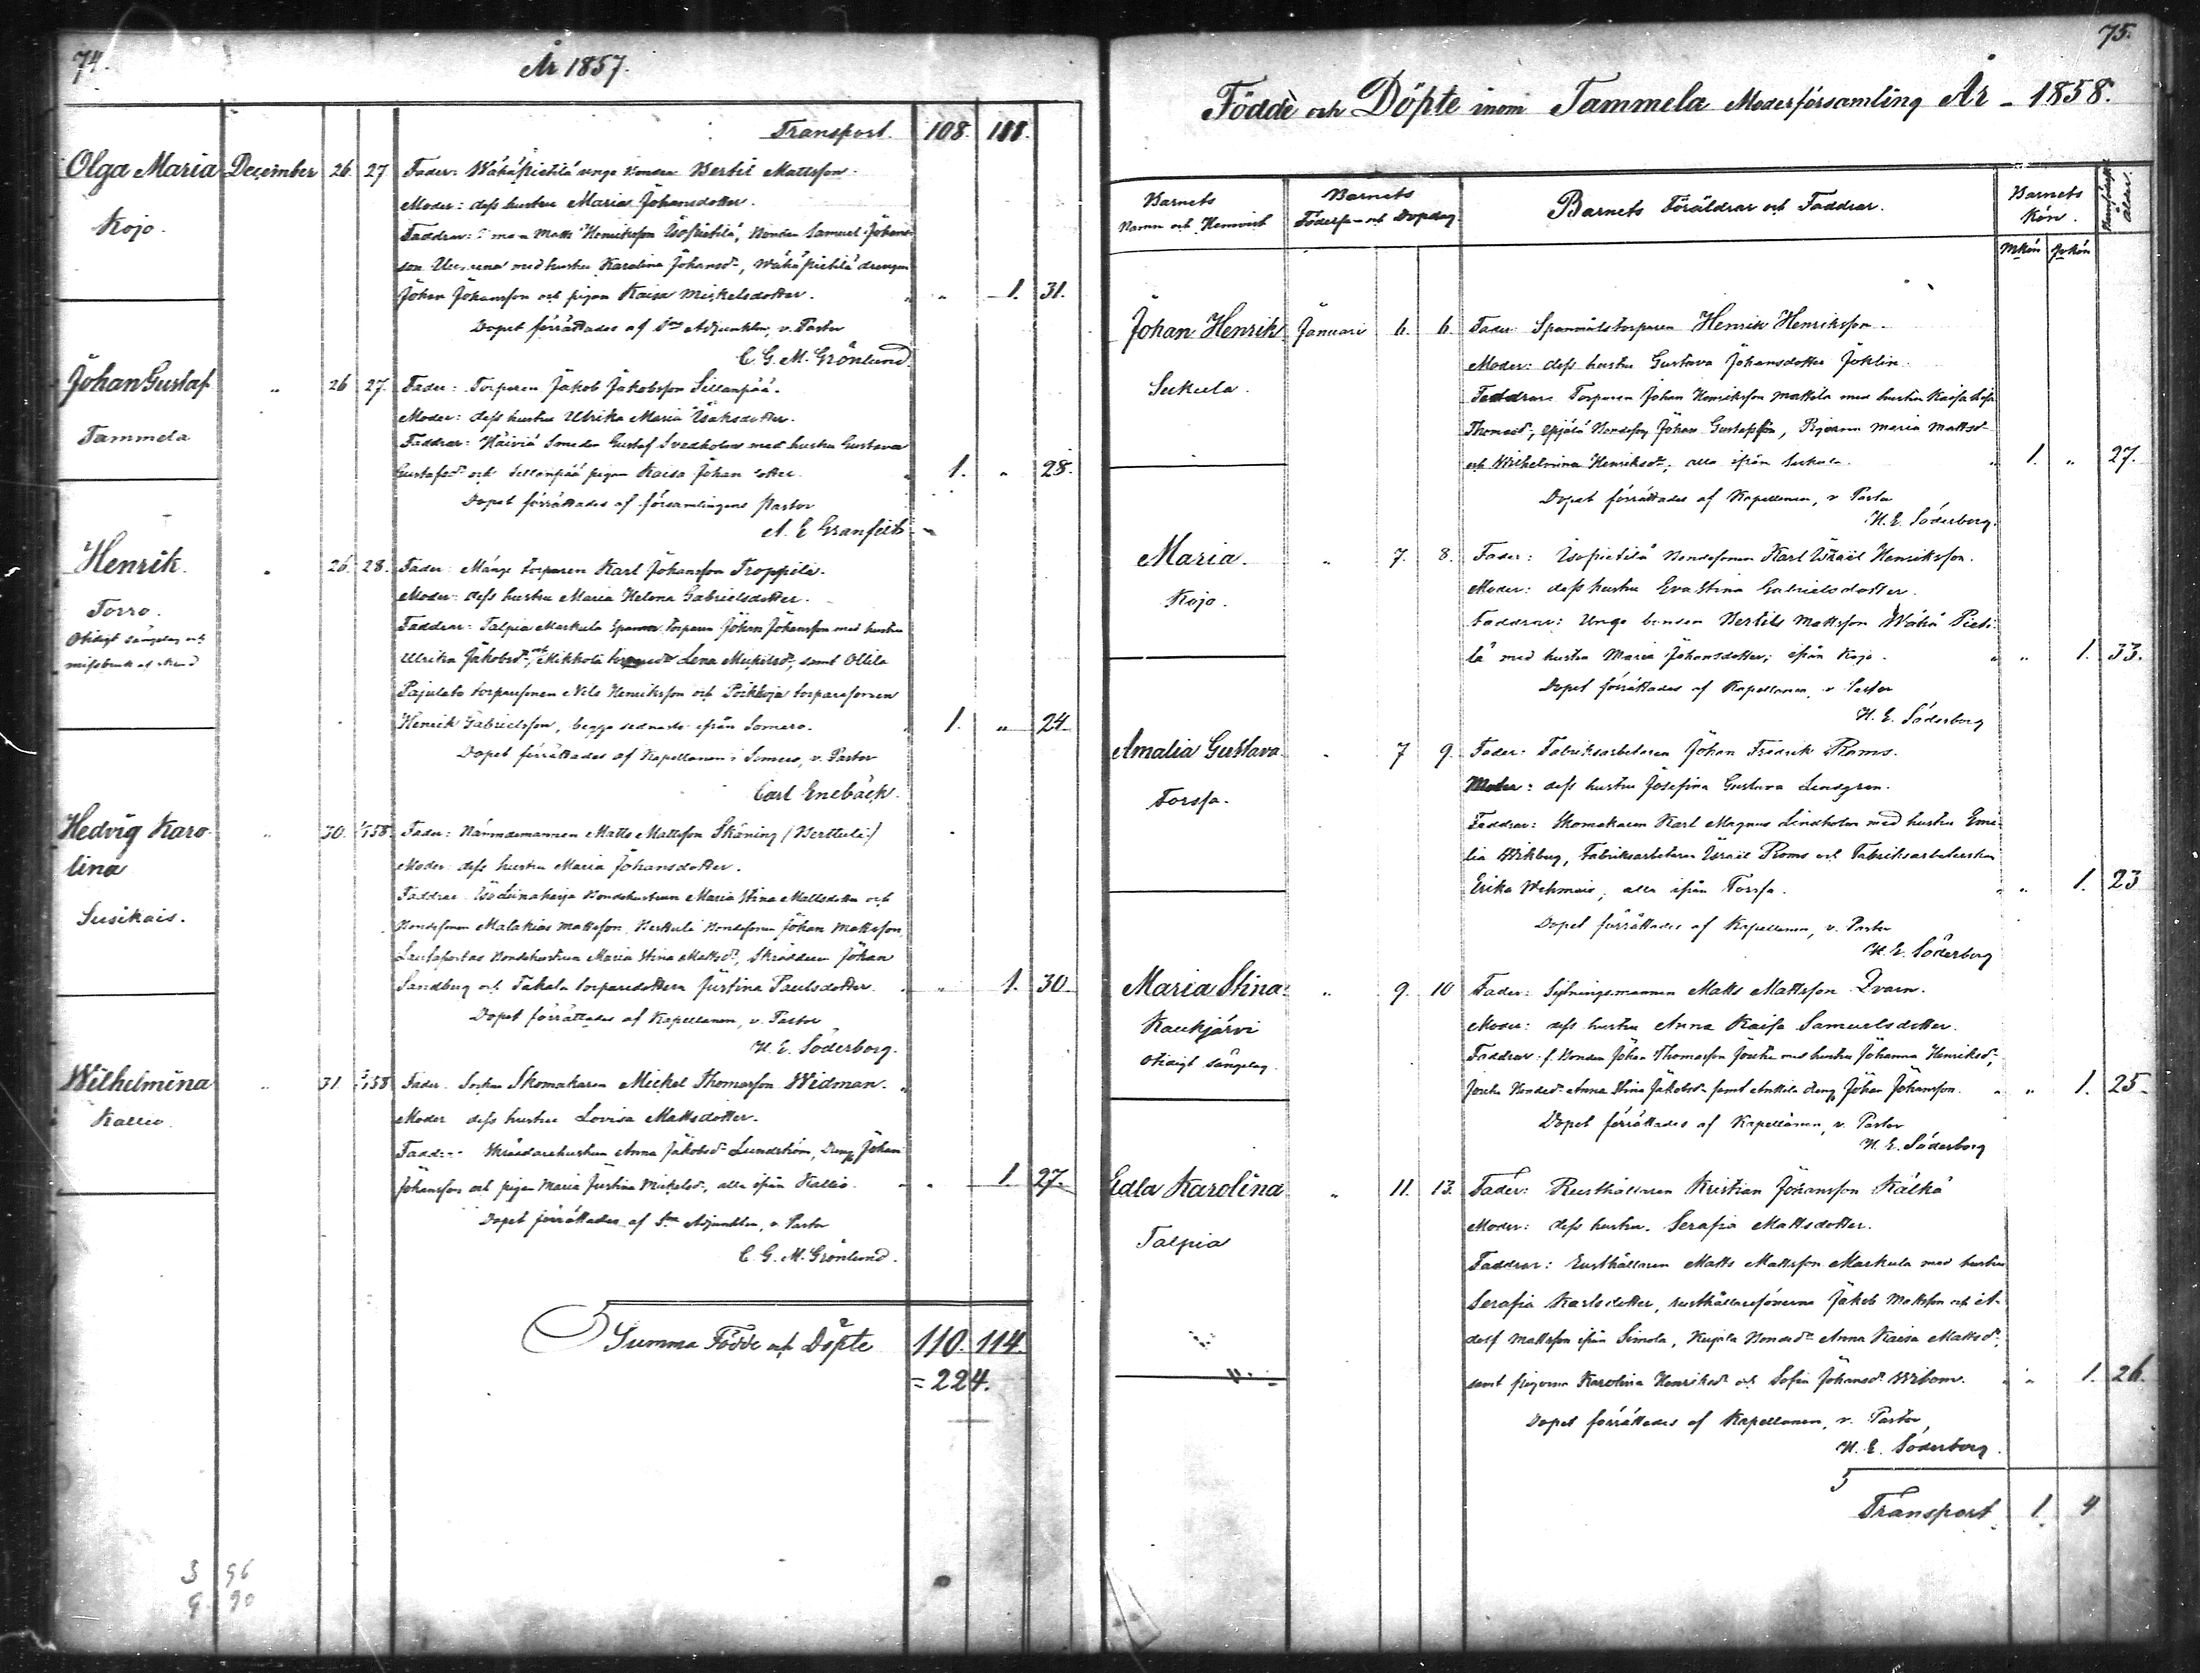 74.
År 1857.
Transport. 108. 111.
Olga Maria December 26. 27 Fader: Wähäpietilä unge bonden Bertil Mattsson.
Moder: dess hustru Maria Johansdotter.
Kojo.
Faddrar: Matts Henriksson Isopietilä, Bonden Samuel Johans-
son med hustru Karolina Johansd:, Wähäpietilä drengen
Johan Johansson och pigan Kaisa Mickelsdotter. " " 1. 31.
Dopet förrättades af Adjunkten, v. Pastor
C. G. M. Grönlund.
Johan Gustaf " 26 27. Fader: Torparen Jakob Jakobsson Sillanpää.
Moder: dess hustru Ulrika Maria Isaksdotter.
Tammela
Faddrar: Häiviä Smeden Gustaf Svedholm med hustru Gustava
Gustafsd: och Sillanpää pigan Kaisa Johan otter. " 1. " 28.
Dopet förrättades af församlingens Pastor
A. E. Granfelt
Henrik. " 26. 28. Fader: torparen Karl Johansson Troppila.
Moder: dess hustru Maria Helena Gabrielsdotter.
Torro.
Faddrar: Talpia Markula torparen Johan Johansson med hustru
Otidigt sängelag och
Ulrika Jakobsd:, Mikkola Lena Mickelsd:, samt Ollila
Pajulato torparesonen Nils Henriksson och torparesonen
Henrik Gabrielsson, begge sednaste ifrån Somero. " 1. " 24.
Dopet förrättades af Kapellanen i Somero, v. Pastor
Carl Enebäck.
Hedvig Karo- " 30. 1/1 58. Fader: Nämndemannen Matts Mattsson Sköning (Berttuli)
lina
Moder: dess hustru Maria Johansdotter.
Susikais.
Faddrar: bondehustrun Maria Stina Mattsdotter och
Bondesonen Malakias Mattsson, Bondesonen Johan Mattsson,
Bondehustrun Maria Stina Mattsd:, Skräddaren Johan
Sandberg och Takala torparedottern Justina Paulsdotter. " " 1. 30.
Dopet förrättades af Kapellanen, v. Pastor
H. E. Söderborg.
Wilhelmina " 31. 58 Fader: Socken Skomakaren Mickel Thomasson Widman.
Kallio.
Moder dess hustru Lovisa Mattsdotter.
Skräddarehustrun Anna Jakobsd: Lundström, Dreng Johan
Johansson och pigan Maria Justina Mickelsd:, alla ifrån Kallio. " " 1. 27.
Dopet förrättades af Adjunkten, v. Pastor
C. G. M. Grönlund.
Summa Födde och Döpte 110. 114.
= 224.
3 96
9 90
75.
Födde och Döpte inom Tammela Moderförsamling År - 1858.
Barnets
Namn och Hemvist
Barnets
Födelse- och Dopdag.
Barnets Föräldrar och Faddrar.
Barnets
Kön.
Mkön Qvkön
ålder.
Johan Henrik Januari 6. 6. Fader: Spannmålstorparen Henrik Henriksson.
Moder: dess hustru Gustava Johansdotter Joklin.
Sukula.
Faddrar: Torparen Johan Henriksson Mattila med hustru Kaisa Lisa
Thomasd:, Bondeson Johan Gustafsson, Pigorna Maria Mattsd:
och Wilhelmina Henriksd:, alla ifrån Sukula. " 1. " 27.
Dopet förrättades af Kapellanen, v. Pastor
H. E. Söderborg.
Maria. " 7. 8. Fader: Isopietilä Bondesonen Karl Israël Henriksson.
Kojo.
Moder: dess hustru Eva Stina Gabrielsdotter.
Faddrar: Unge bonden Bertils Mattsson Wähä Pieti-
lä med hustru Maria Johansdotter, ifrån Kojo. " " 1. 33.
Dopet förrättades af Kapellanen, v. Pastor
H. E. Söderborg
Amalia Gustava " 7 9. Fader: Fabriksarbetaren Johan Fredrik Roms.
Forssa.
Moder: dess hustru Josefina Gustava Lindgren.
Faddrar: Skomakaren Karl Magnus Lindholm med hustru Emi-
lia Wikberg, Fabriksarbetaren Israël Roms och Fabriksarbeterskan
Erika Wehmais, alla ifrån Forssa. " " 1. 23
Dopet förrättades af Kapellanen, v. Pastor
H. E. Söderborg
Maria Stina. " 9. 10 Fader: Sytningsmannen Matts Mattsson Qvarn.
Kaukjärvi
Moder: dess hustru Anna Kaisa Samuelsdotter.
Otidigt sängelag.
Faddrar: f. Bonden Johan Thomasson med hustru Johanna Henriksd:,
Anna Stina Jakobsd: samt Anttila dreng Johan Johansson. " " 1. 25.
Dopet förrättades af Kapellanen, v. Pastor
H. E. Söderborg
Edla Karolina " 11. 13. Fader: Rusthållaren Kristian Johansson Kälkä
Talpia
Moder: dess hustru Serafia Mattsdotter.
Faddrar: Rusthållaren Matts Mattsson Markula med hustru
Serafia Karlsdotter, rusthållaresönerna Jakob Mattsson och A-
dolf Mattsson ifrån Simola, Kujala Bonded: Anna Kaisa Mattsd:,
samt pigorna Karolina Henriksd: och Sofia Johansd: Wibom. " " 1. 26.
Dopet förrättades af Kapellanen, v. Pastor,
H. E. Söderborg.
Transport. 1. 4